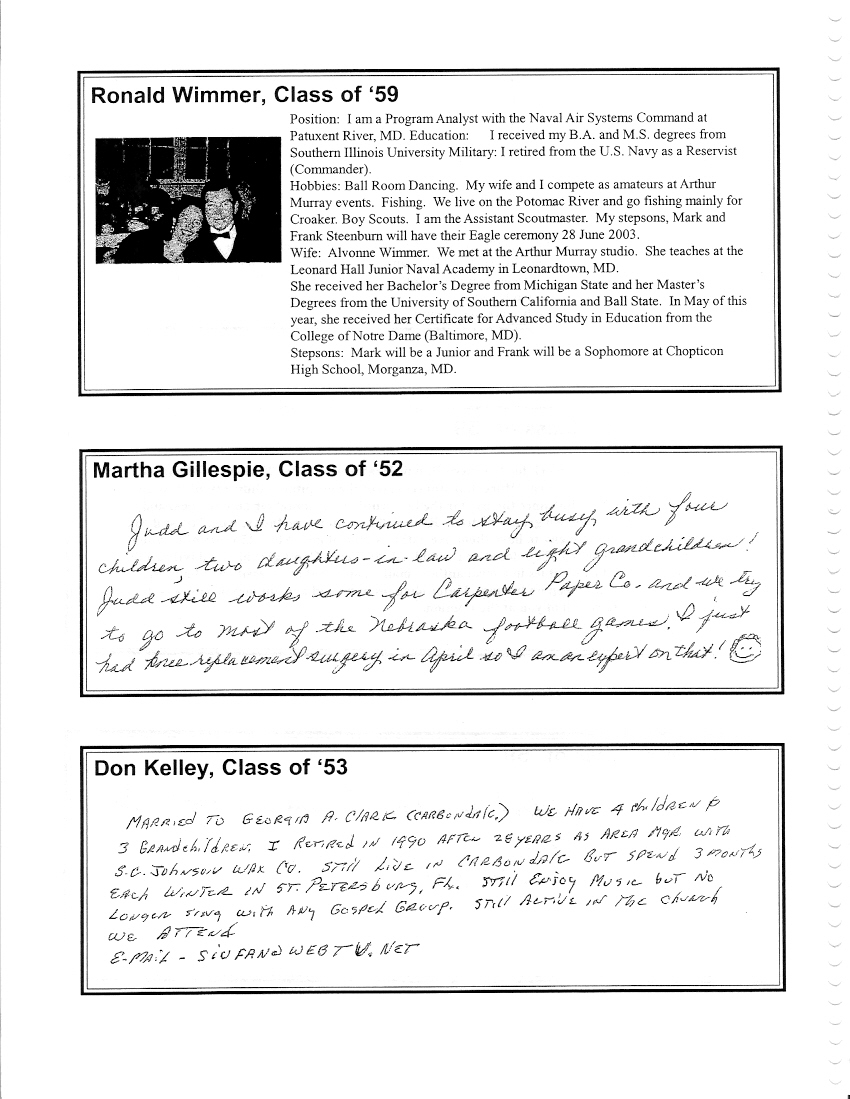 Ronald Wimmer, Class of ‘59
Position: I am a Program Analyst with the Naval Air Systems Command at
Patuxent River, MD. Education: I received my B.A. and M.S. degrees from
Southern Illinois University Military: I retired from the U.S. Navy as a Reservist
(Commander).
Hobbies: Ball Room Dancing. My wife and I compete as amateurs at Arthur
Murray events. Fishing. We live on the Potomac River and go fishing mainly for
Croaker. Boy Scouts. I am the Assistant Scoutmaster. My stepsons, Mark and
Frank Steenburn will have their Eagle ceremony 28 June 2003.
Wife: Alvonne Wimmer. We met at the Arthur Murray studio. She teaches at the
Leonard Hall Junior Naval Academy in Leonardtown, MD.
She received her Bachelor's Degree from Michigan State and her Master's
Degrees from the University of Southern California and Ball State. In May of this
year, she received her Certificate for Advanced Study in Education from the
College of Notre Dame (Baltimore, MD).
Stepsons: Mark will be a Junior and Frank will be a Sophomore at Chopticon
High School, Morganza, MD.
Martha Gillespie, Class of ‘52
Judd and I have continued to stay busy with four
children, two daughters-in-law and eight grandchildren!
Judd still works some for Carpenter Paper Co. and we try
to go to most of the Nebraska football games. I just
had knee replacement surgery in April so I am an expert on that!
Don Kelley, Class of ‘53
MARRIED TO GEORGIA A. CLARK (CARBONDALE.) WE HAVE 4 children &
3 GRANdchildREN. I RETIRED IN 1990 AFTER 28 YEARS AS AREA MGR WITH
S.C. JOHNSON WAX CO. STILL LIVE IN CARBONDALE BUT SPEND 3 MONTHS
EACH WINTER IN ST. PETERSBURG, FL. STILL ENJOY MUSIC BUT NO
LONGER SING WITH ANY GOSPEL GROUP. STILL ACTIVE IN THE CHURCH
WE ATTEND
E-MAIL - SIUFAN@WEBTV.NET